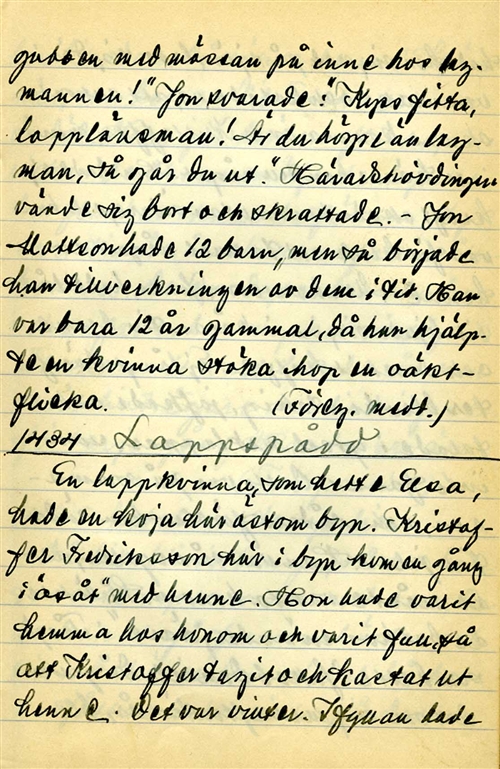 gubben med mössan på inne hos lag-
mannen!" Jon svarade: "Kyss fitta,
lapplänsman! Är du högre än lag-
man, så går du ut." Häradshövdingen
vände sig bort och skrattade. - Jon
Mattson hade 12 barn, men så började
han tillverkningen av dem i tid. Han
var bara 12 år gammal, då han hjälp-
te en kvinna stöka ihop en oäkt-
flicka. (Föreg. medd.)
1434 Lappspådd
En lappkvinna, som hette Elsa,
hade en koja här östom byn. Kristof-
fer Fredriksson här i byn kom en gång
i "osåt" med henne. Hon hade varit
hemma hos honom och varit full, så
att Kristoffer tagit och kastat ut
henne. Det var vinter. I fyllan hade